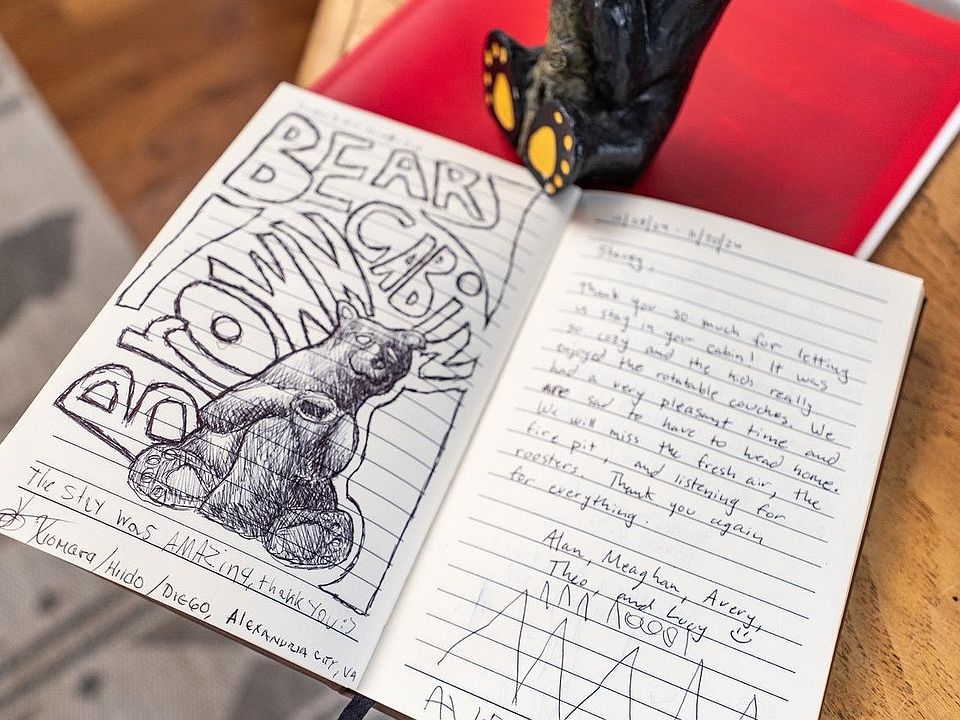 BEAR
CABIN
BROWN
The stay was AMAZing, thank you :)
Xiomara/Hildo/Diego, Alexandria City, VA
11/30/24
Stacey,
Thank you so much for letting
us stay in your cabin! It was
so cozy and the kids really
enjoyed the rotatable couches. We
had a very pleasant time and
are sad to have to head home.
We will miss the fresh air, the
fire pit, and listening for
roosters. Thank you again
for everything.
Alan, Meaghan, Avery,
Theo, and Lucy